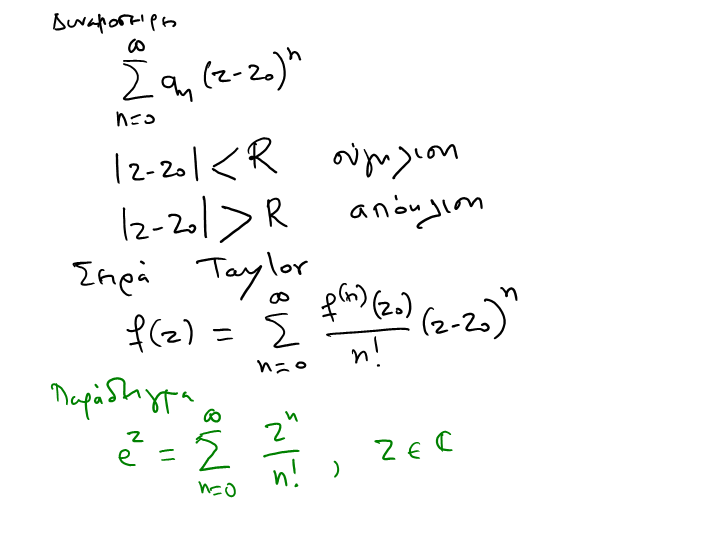 Δυναμοσειρές
∞
∑ aₙ (z-z₀)ⁿ
n=0
|z-z₀| < R σύγκλιση
|z-z₀| > R απόκλιση
Σειρά Taylor
f(z) = ∑_{n=0}^{∞} f⁽ⁿ⁾(z₀)/n! (z-z₀)ⁿ
Παράδειγμα
e^z = ∑_{n=0}^{∞} zⁿ/n! , z ∈ ℂ